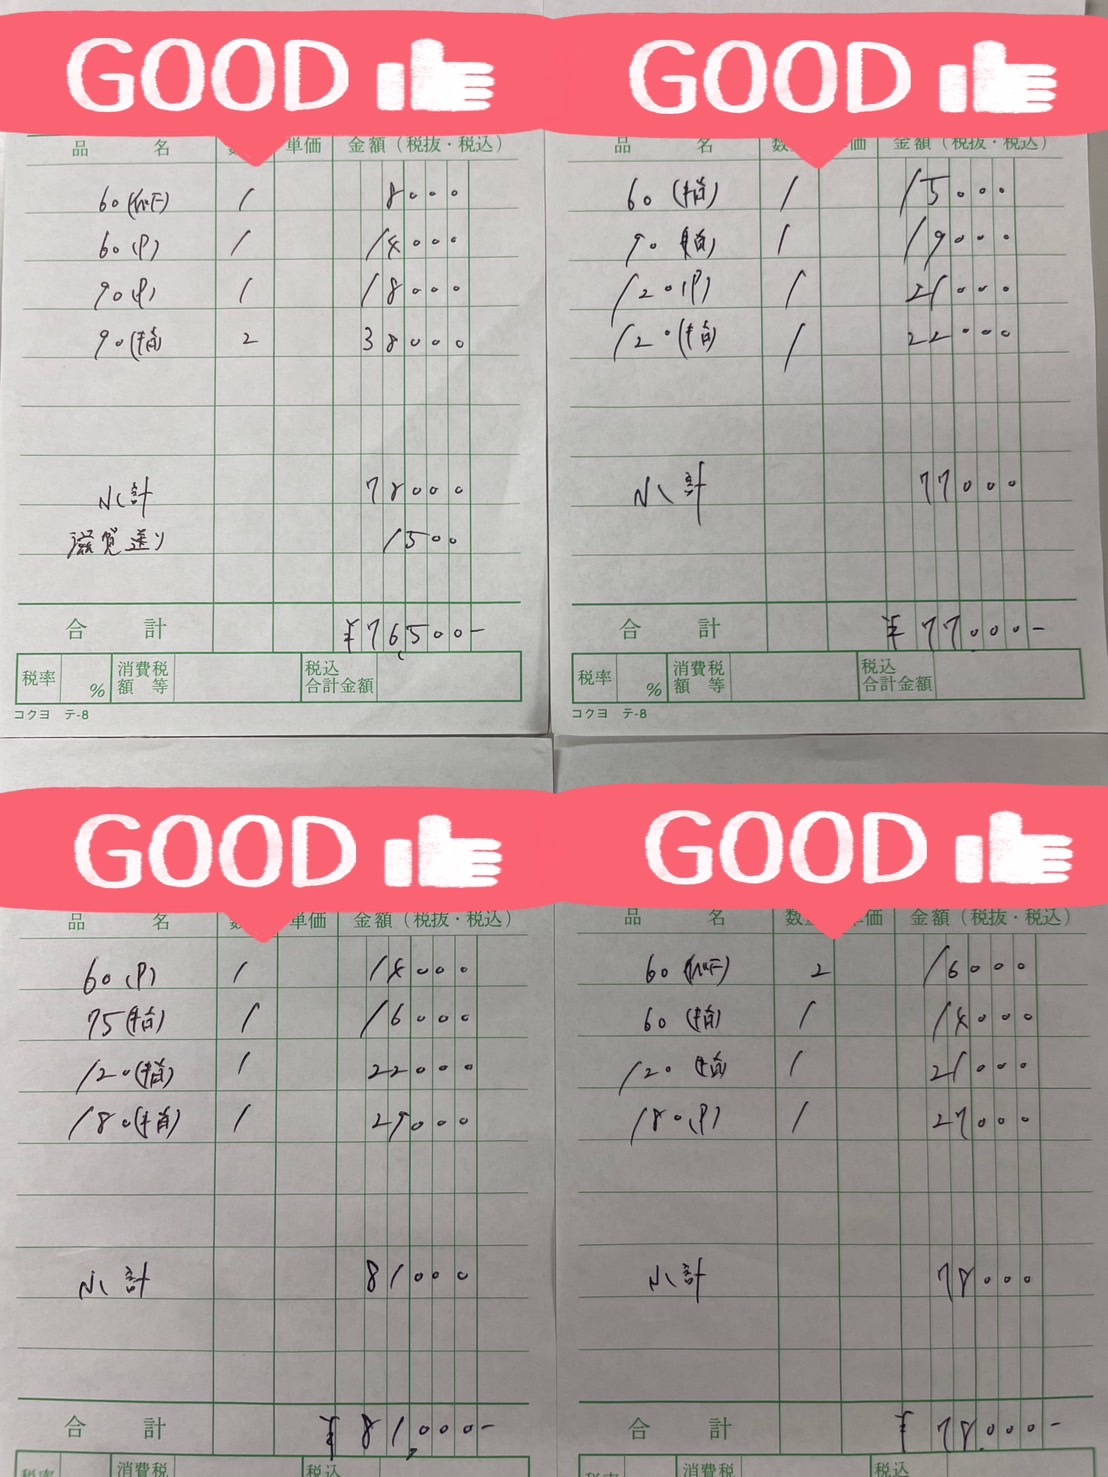 GOOD
品 名 単価 金額（税抜・税込）
60 1 8000
60(P) 1 14000
90(P) 1 18000
90(指) 2 38000
小計 78000
滋賀送り 1500
合 計 ¥76,500-
税率 % 消費税額等 税込合計金額
コクヨ テ-8
GOOD
品 名 数 価 金額（税抜・税込）
60(指) 1 15000
90(指) 1 19000
120(P) 1 21000
120(指) 1 22000
小計 77000
合 計 ¥77,000-
税率 % 消費税額等 税込合計金額
コクヨ テ-8
GOOD
品 名 単価 金額（税抜・税込）
60(P) 1 14000
75(指) 1 16000
120(指) 1 22000
180(指) 1 29000
小計 81000
合 計 ¥81,000-
税率 消費税 税込
GOOD
品 名 数 価 金額（税抜・税込）
60 2 16000
60(指) 1 14000
120(指) 1 21000
180(P) 1 27000
小計 78000
合 計 ¥78,000-
税率 消費税 税込